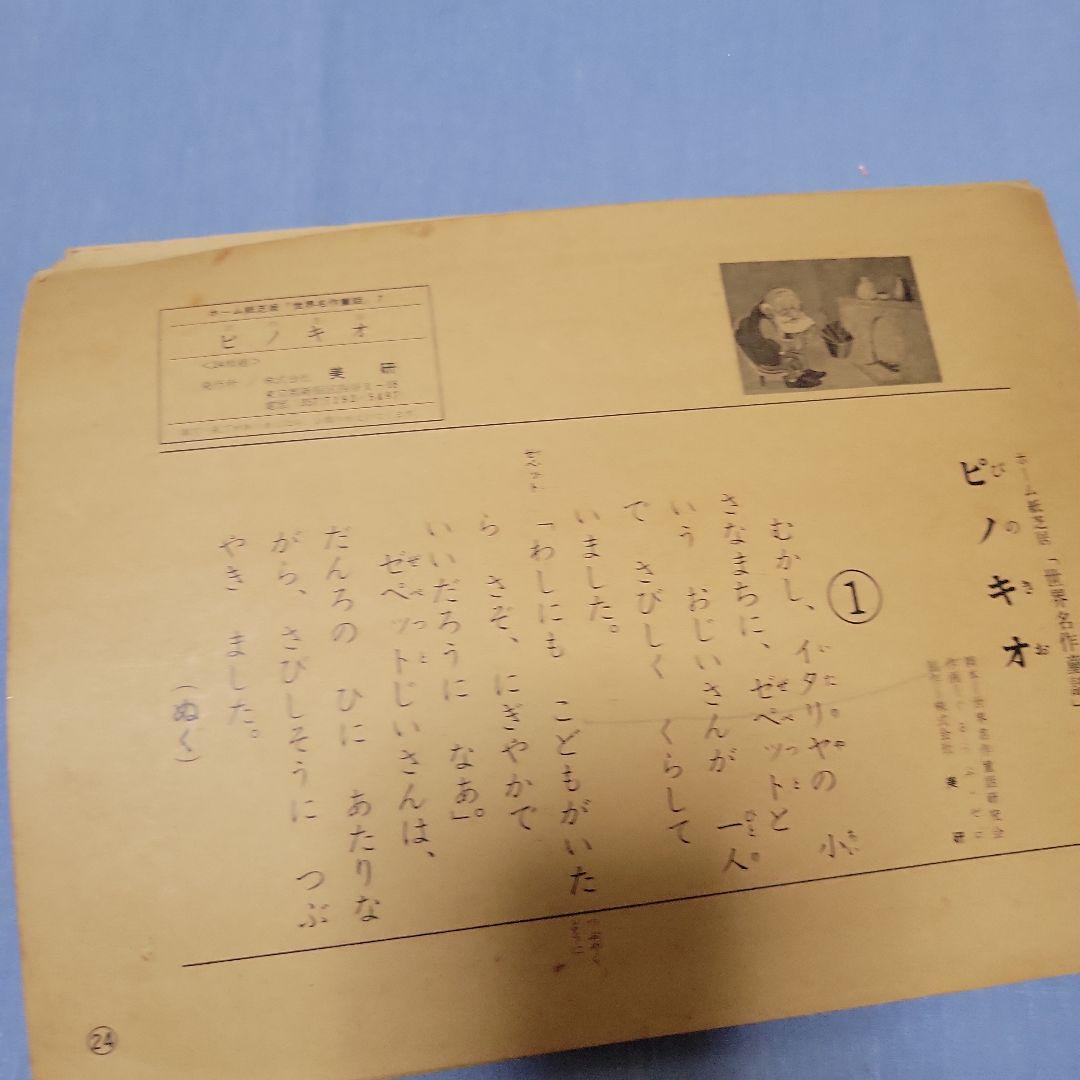 ホーム紙芝居「世界名作童話」
ピノキオ
びのきお
美研
①
むかし、イタリヤの 小
さなまちに、ゼペットと
いう おじいさんが 一人
で さびしく くらして
いました。
ゼペット
「わしにも こどもがいた
ら さぞ、にぎやかで
いいだろうに なあ」
ゼペットじいさんは、
だんろの ひに あたりな
がら、さびしそうに つぶ
やき ました。
(ぬく)
ホーム紙芝居「世界名作童話」7
ピノキオ
<24枚組>
発行所/株式会社 美研
㉔